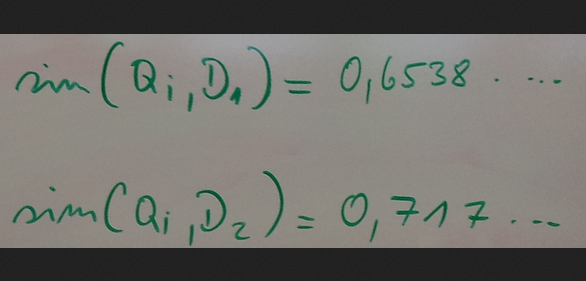 sim(Qi, D1) = 0,6538 . ...
sim(Qi, D2) = 0,717 ...